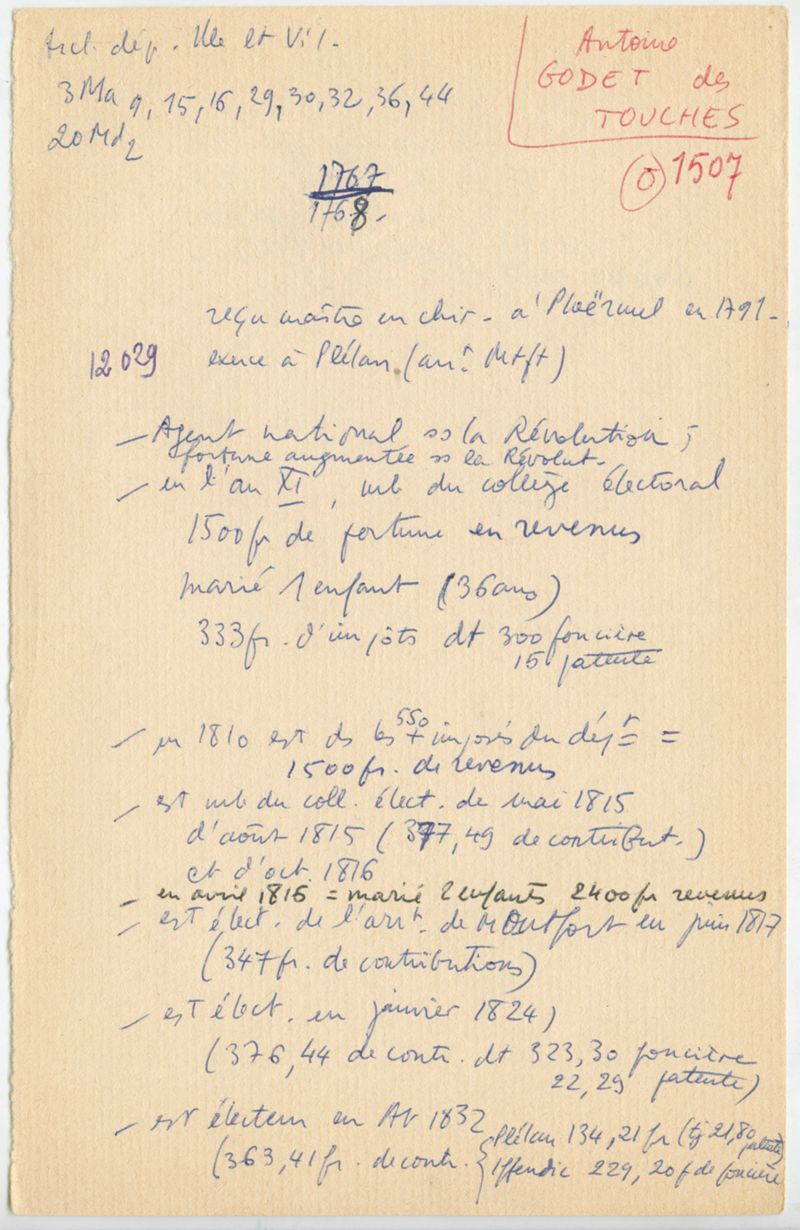 Arch. dép. Ille et Vil.
3Ma 9, 15, 16, 29, 30, 32, 36, 44
20Md2
Antoine
GODET des
TOUCHES
O 1507
1767
1768.
reçu maître en chir. à Ploërmel en 1791.
12029
exerce à Plélan (arrt. Mtft)
– Agent national ss la Révolution ;
fortune augmentée ss la Révolut.
– en l'an XI, mb du collège électoral
1500fr de fortune en revenus
marié 1 enfant (36ans)
333fr. d'impôts dt 300 foncière
15 patente
– en 1810 est ds les 550 + imposés du dépt =
1500fr. de revenus
– est mb du coll. élect. de mai 1815
d'août 1815 (377,49 de contribut.)
et d'oct. 1816
– en avril 1816 = marié 2 enfants 2400fr revenus
– est élect. de l'arrt. de Montfort en juin 1817
(347fr. de contributions)
– est élect. en janvier 1824)
(376,44 de contr. dt 323,30 foncière
22,29 patente)
– est électeur en At 1832
(363,41fr. de contr. { Plélan 134,21fr (tj 21,80 patente)
Iffendic 229,20f de foncière